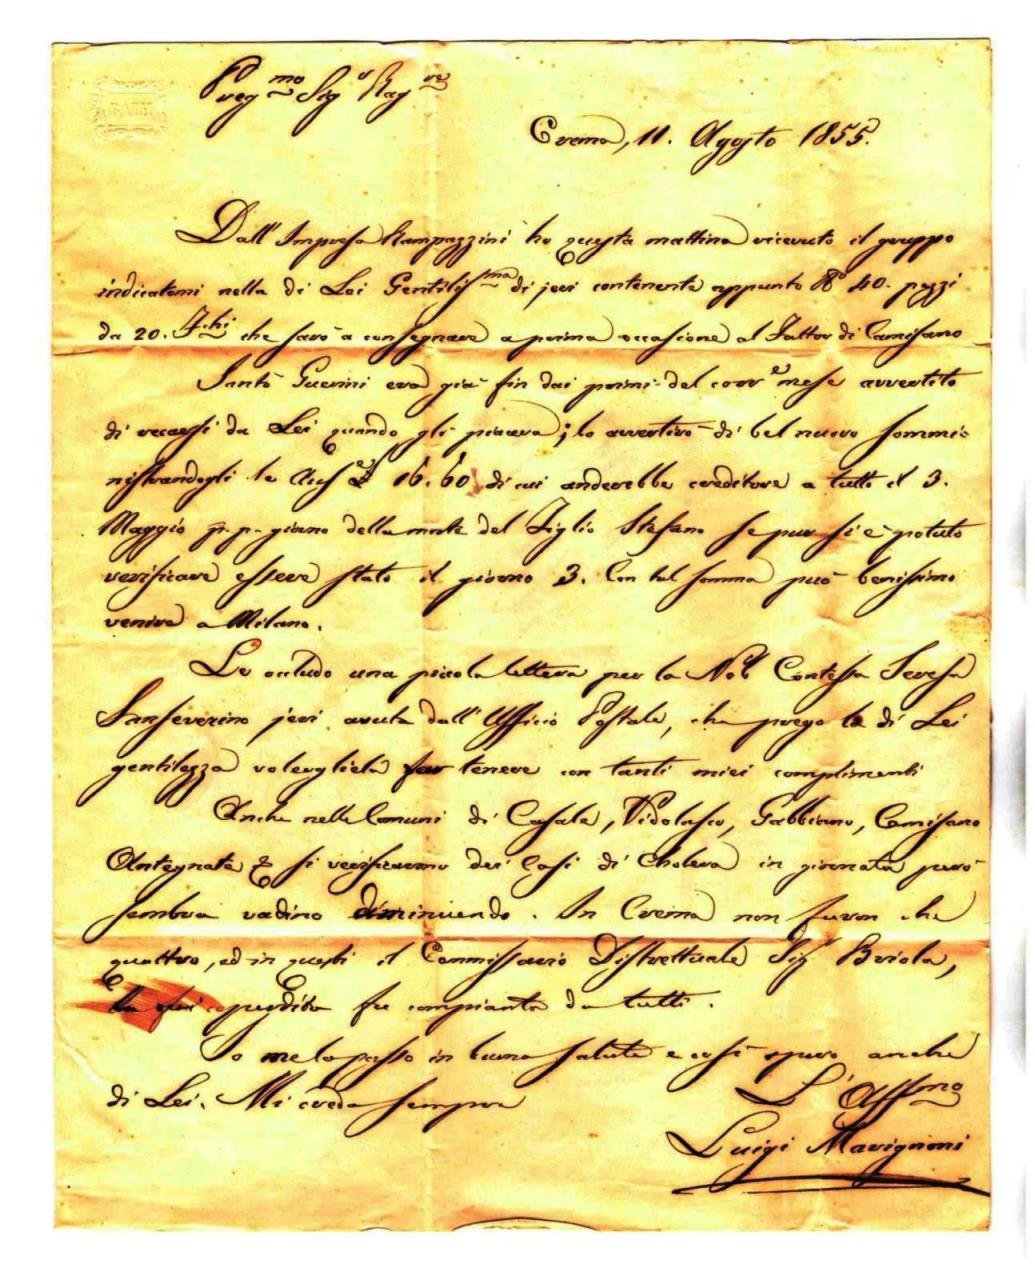 Preg.mo Sig.r Rag.re
Crema, 11. Agosto 1855.
Dall'Impresa Rampazzini ho questa mattina ricevuto il gruppo
indicatomi nella di Lei Gentiliss.ma di jeri contenente appunto N.o 40. pezzi
da 20. F.chi che farò a consegnare a prima occasione al Fattor di Camisano
Santo Guerini era già fin dai primi del corr.e mese avvertito
di recarsi da Lei quando gli piaceva; lo avvertirò di bel nuovo sommi-
nistrandogli le Aus.e £ 16.60 di cui anderebbe creditore a tutto il 3.
Maggio p.p. giorno della morte del Figlio Stefano se pur si è potuto
verificare essere stato il giorno 3. Con tal somma può benissimo
venire a Milano.
Le occludo una piccola lettera per la Nob. Contessa Teresa
Sanseverino jeri avuta dall'Ufficio Postale, che prego la di Lei
gentilezza volerglielà far tenere con tanti miei complimenti
Anche nelle Comuni di Casale, Vidolasco, Gabbiano, Camisano
Antegnate & si verificarono dei Casi di Cholera in giornata però
sembra vadino diminuendo. In Crema non furon che
quattro, ed in questi il Commissario Distrettuale Sig. Briola,
la cui perdita fu compianta da tutti.
Io me la passo in buona salute e così spero anche
di Lei. Mi creda sempre
L'Aff.mo
Luigi Marignoni